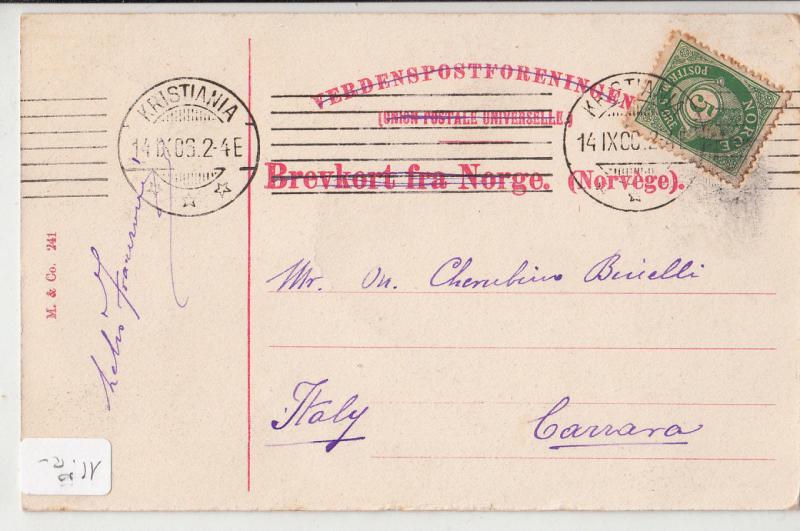 VERDENSPOSTFORENINGEN
(UNION POSTALE UNIVERSELLE.)
Brevkort fra Norge. (Norvège).
KRISTIANIA
14 IX 06. 2-4 E
KRISTIANIA
14 IX 06. 2
NORGE
POSTFRIM
5
M. & Co. 241
Mr. On. Cherubino Binelli
Italy Carrara